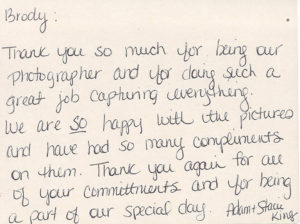 Brody:
Thank you so much for being our
photographer and for doing such a
great job capturing everything.
We are so happy with the pictures
and have had so many compliments
on them. Thank you again for all
of your committments and for being
a part of our special day. Adam + Staci
King